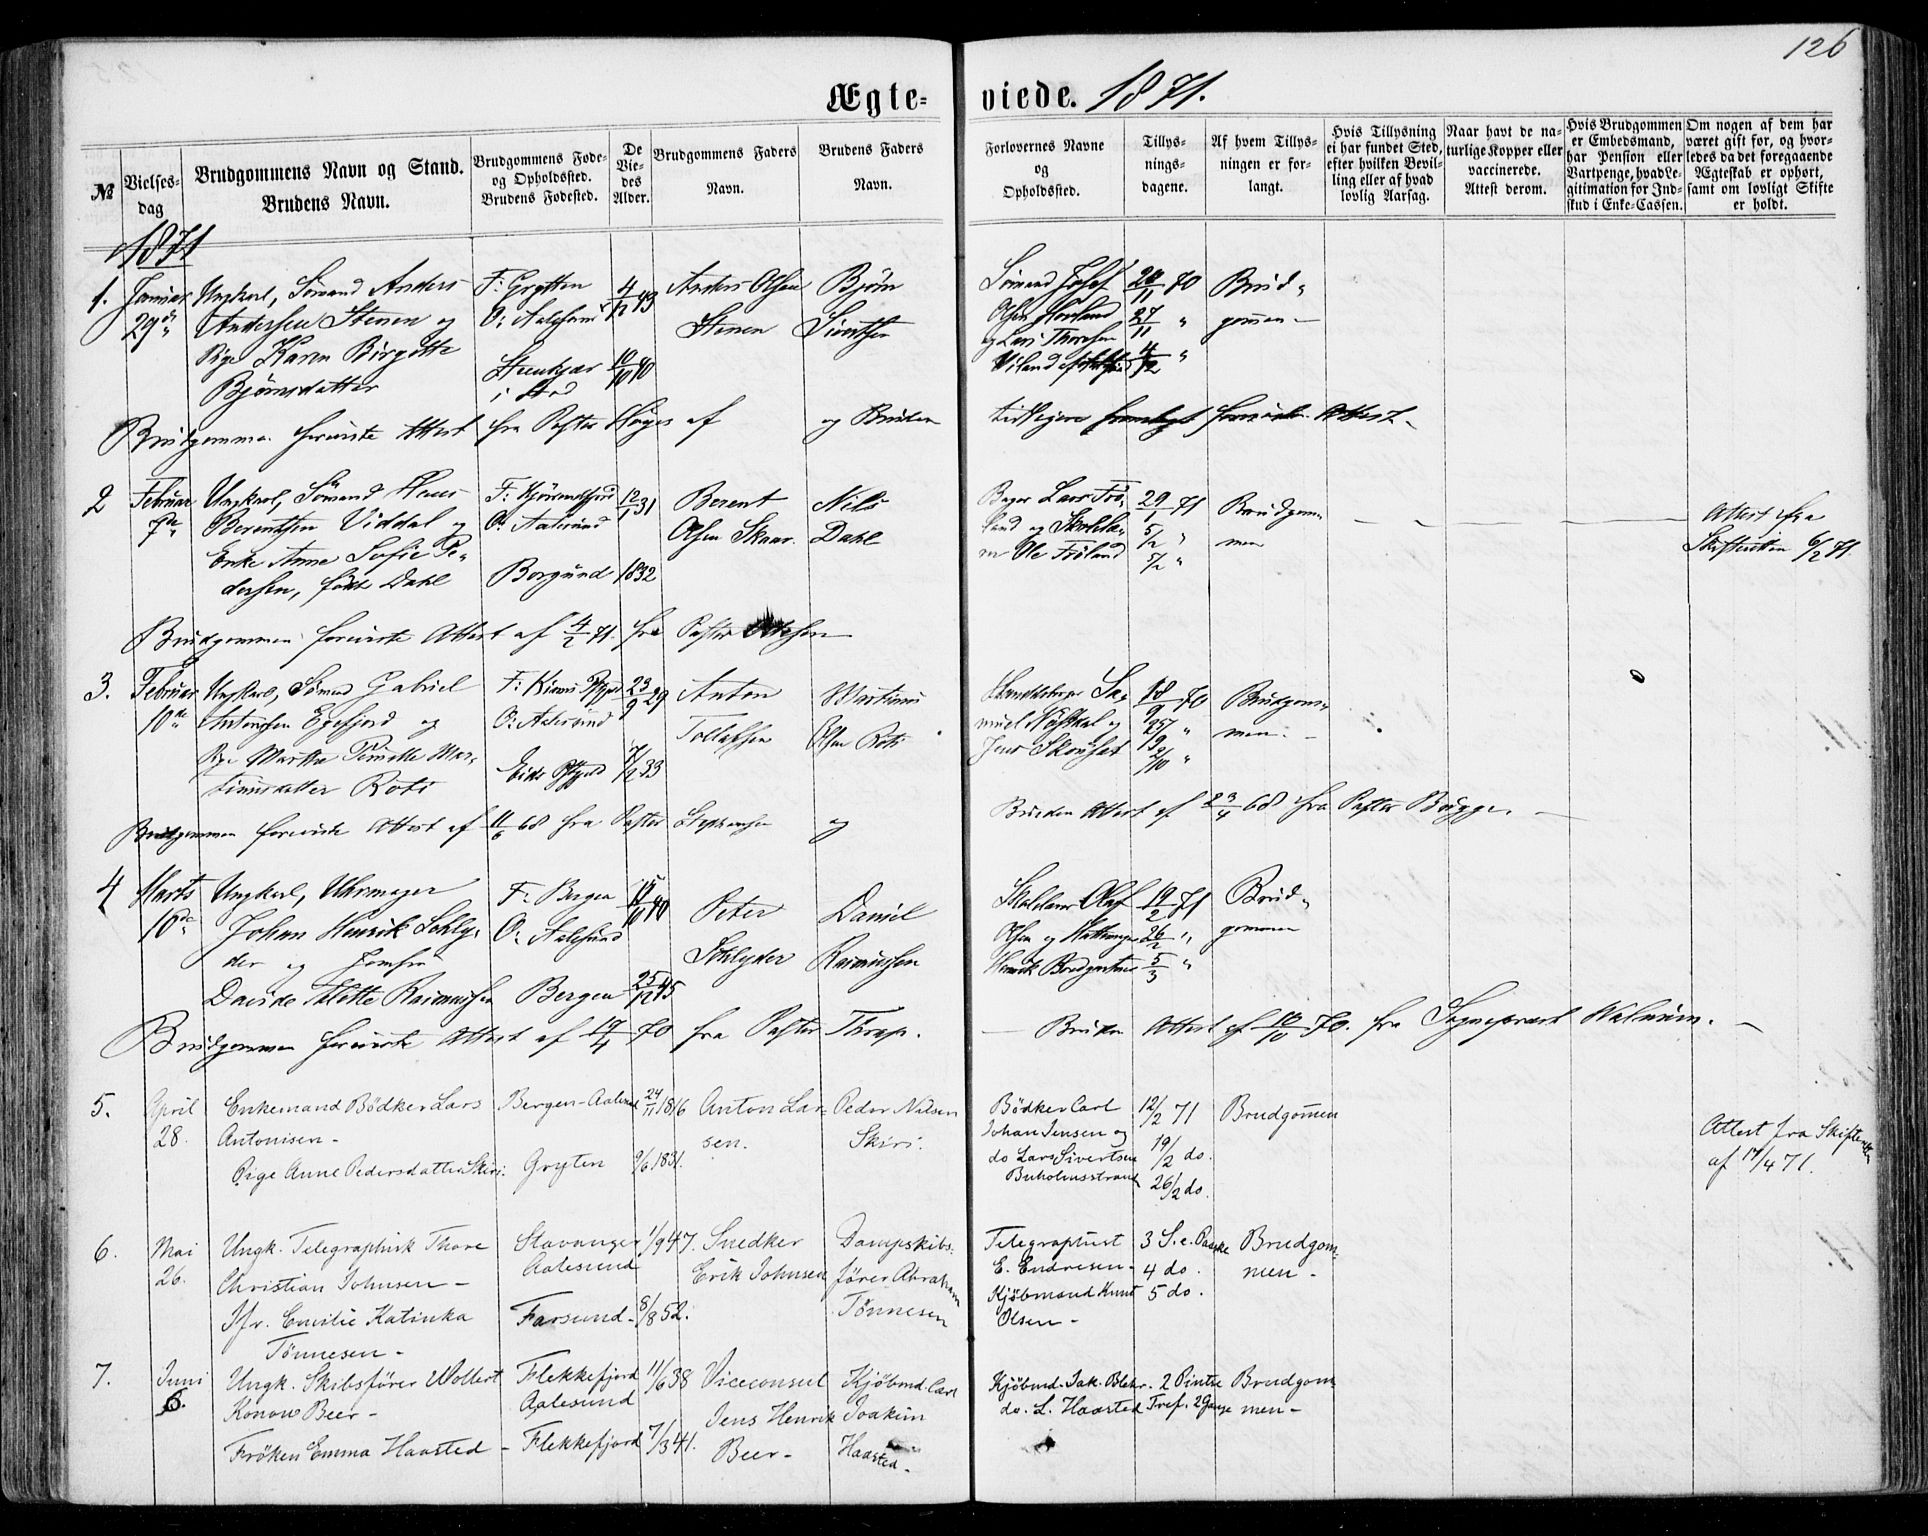 126
Ægte-
viede. 1871.
№
Vielses-
dag
Brudgommens Navn og Stand.
Brudens Navn.
Brudgommens Føde-
og Opholdssted.
Brudens Fødested.
De
Vie-
des
Alder.
Brudgommens Faders
Navn.
Brudens Faders
Navn.
Forlovernes Navne
og
Opholdssted.
Tillys-
nings-
dagene.
Af hvem Tillys-
ningen er for-
langt.
Hvis Tillysning
ei har fundet Sted,
efter hvilken Bevil-
ling eller af hvad
lovlig Aarsag.
Naar havt de na-
turlige Kopper eller
vaccinerede.
Attest derom.
Hvis Brudgommen
er Embedsmand,
har Pension eller
Vartpenge, hvad Le-
gitimation for Ind-
skud i Enke-Cassen.
Om nogen af dem har
været gift for, og hvor-
ledes da det foregaaende
Ægteskab er ophørt,
samt om lovligt Skifte
er holdt.
1871
1. Januar
29de
Ungkarl, Sømand Anders
Andersen Stenen og
Pige Karen Birgitte
Bjørnsdatter
F: Grytten
O: Aalesund
Stenkjær
4/12 43
10/10 40
Anders Olsen
Stenen
Bjørn
Sivertsen
Sømand Josef
Olsen
og Lars Thoresen
20/11 70
27/11 "
4/12 "
Brud-
gommen
Brudgommen foreviste Attest fra Pastor af og Bruden
tidligere Attest
2 Februar
7de
Ungkarl, Sømand Hans
Berentsen Viddal og
Enke Anne Sofie Pe-
dersen, født Dahl
F: Hjørendfjord
O: Aalesund
Borgund
12/1 31
1832
Berent
Olsen Skaar
Nils
Dahl
Bager Lars Frø-
land og Skolelæ-
rer Ole Frøland
29/1 71
5/2 "
5/2 "
Brudgom-
men
Attest fra
Skifteretten 6/2 71.
Brudgommen foreviste Attest af 4/2 71. fra Pastor
3. Februar
10de
Ungkarl, Sømand Gabriel
Antonsen Egefjord og
Pige Marthe Pernille Mar-
tinusdatter Roti
O: Aalesund
Eids Pgjeld
23/9 29
7/12 33
Anton
Tollefsen
Martinus
Olsen Roti
Sa-
muel og
Jens
18/9 70
25/9 "
2/10 "
Brudgom-
men.
Brudgommen foreviste Attest af 11/6 68 fra Pastor Stephansen og
Bruden Attest af 23/4 68 fra Pastor Brügge.
4 Marts
10de
Ungkarl, Uhrmager
Johan Henrik Schly-
der og Jomfru
Davide Alette Rasmussen
F: Bergen
O: Aalesund
Bergen
25/12 45
Peter
Schlyder
Daniel
Rasmussen
Skolelærer Olaf
Olsen og
Henrik
19/2 71
26/2 "
5/3 "
Brud-
gommen
Brudgommen foreviste Attest af 19/4 70 fra Pastor Thrap.
Bruden Attest af 10/10 70. fra Sogneprest Walnum.
5. April
28.
Enkemand Bödker Lars
Antonisen-
Pige Anne Pedersdatter Skiri.
Bergen-Aalesund
Gryten
24/11 1816
9/6 1831.
Anton Lar-
sen.
Peder Nilsen
Skiri.
Bödker Carl
Johan Jensen og
do Lars Sivertsen
Buholmsstrand
12/2 71
19/2 do.
26/2 do.
Brudgomen
Attest fra Skifteretten
af 17/4 71.
6. Mai
26.
Ungk. Telegraphist Thore
Christian Johnsen -
Jfr. Emilie Katinka
Tönnesen -
Stavanger
Aalesund
Farsund -
1/9 47.
8/8 52.
Snedker
Erik Johnsen
Dampskibs-
förer Abraham
Tönnesen
Telegraphist
E. Endresen -
Kjöbmand Knut
Olsen -
3 S. e. Paaske
4 do.
5 do.
Brudgom-
men -
7. Juni
6.
Ungk. Skibsförer Wollert
Konow Beer -
Fröken Emma Haasted -
Flekkefjord
Aalesund
Flekkefjord
11/6 38
7/3 41.
Viceconsul
Jens Henrik
Beer -
Kjöbmd. Carl
Joakim
Haasted -
Kjöbmd. Jak. Blehr.
do. L. Haasted
2 Pintse
Tref. 2 Gange
Brudgom-
men -